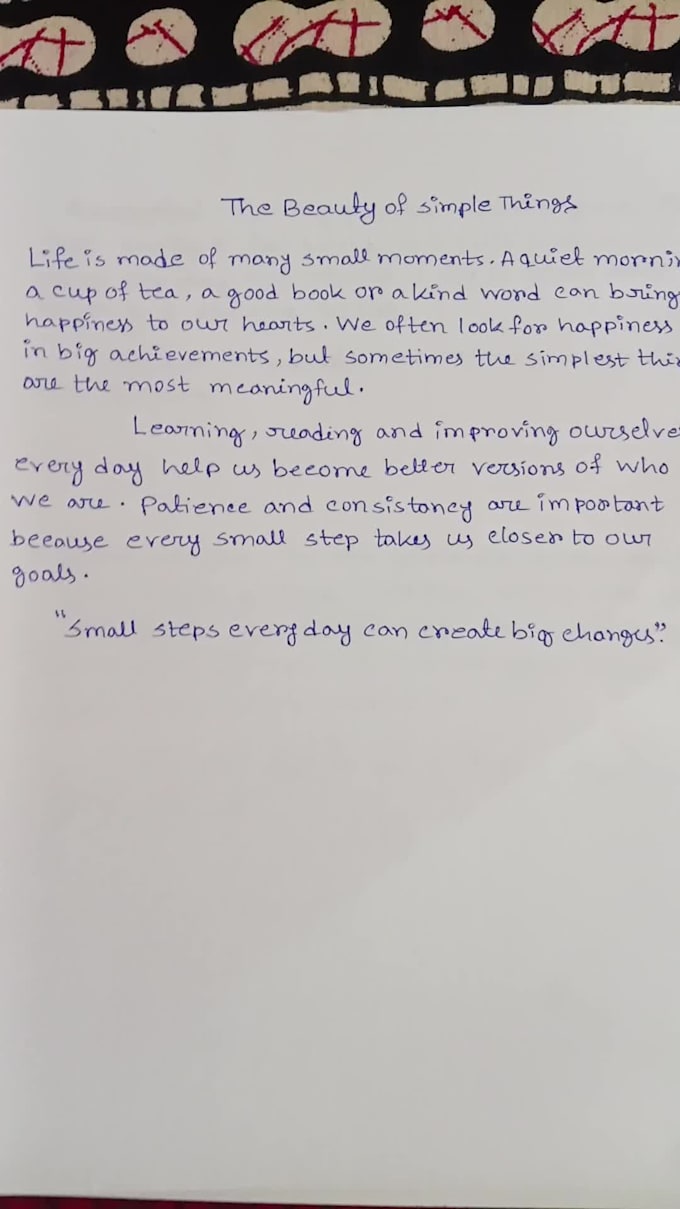 The Beauty of simple Things
Life is made of many small moments. A quiet morni
a cup of tea, a good book or a kind word can bring
happiness to our hearts. We often look for happiness
in big achievements, but sometimes the simplest thi
are the most meaningful.
Learning, reading and improving ourselve
every day help us become better versions of who
we are. Patience and consistancy are important
because every small step takes us closer to our
goals.
"Small steps every day can create big changes".